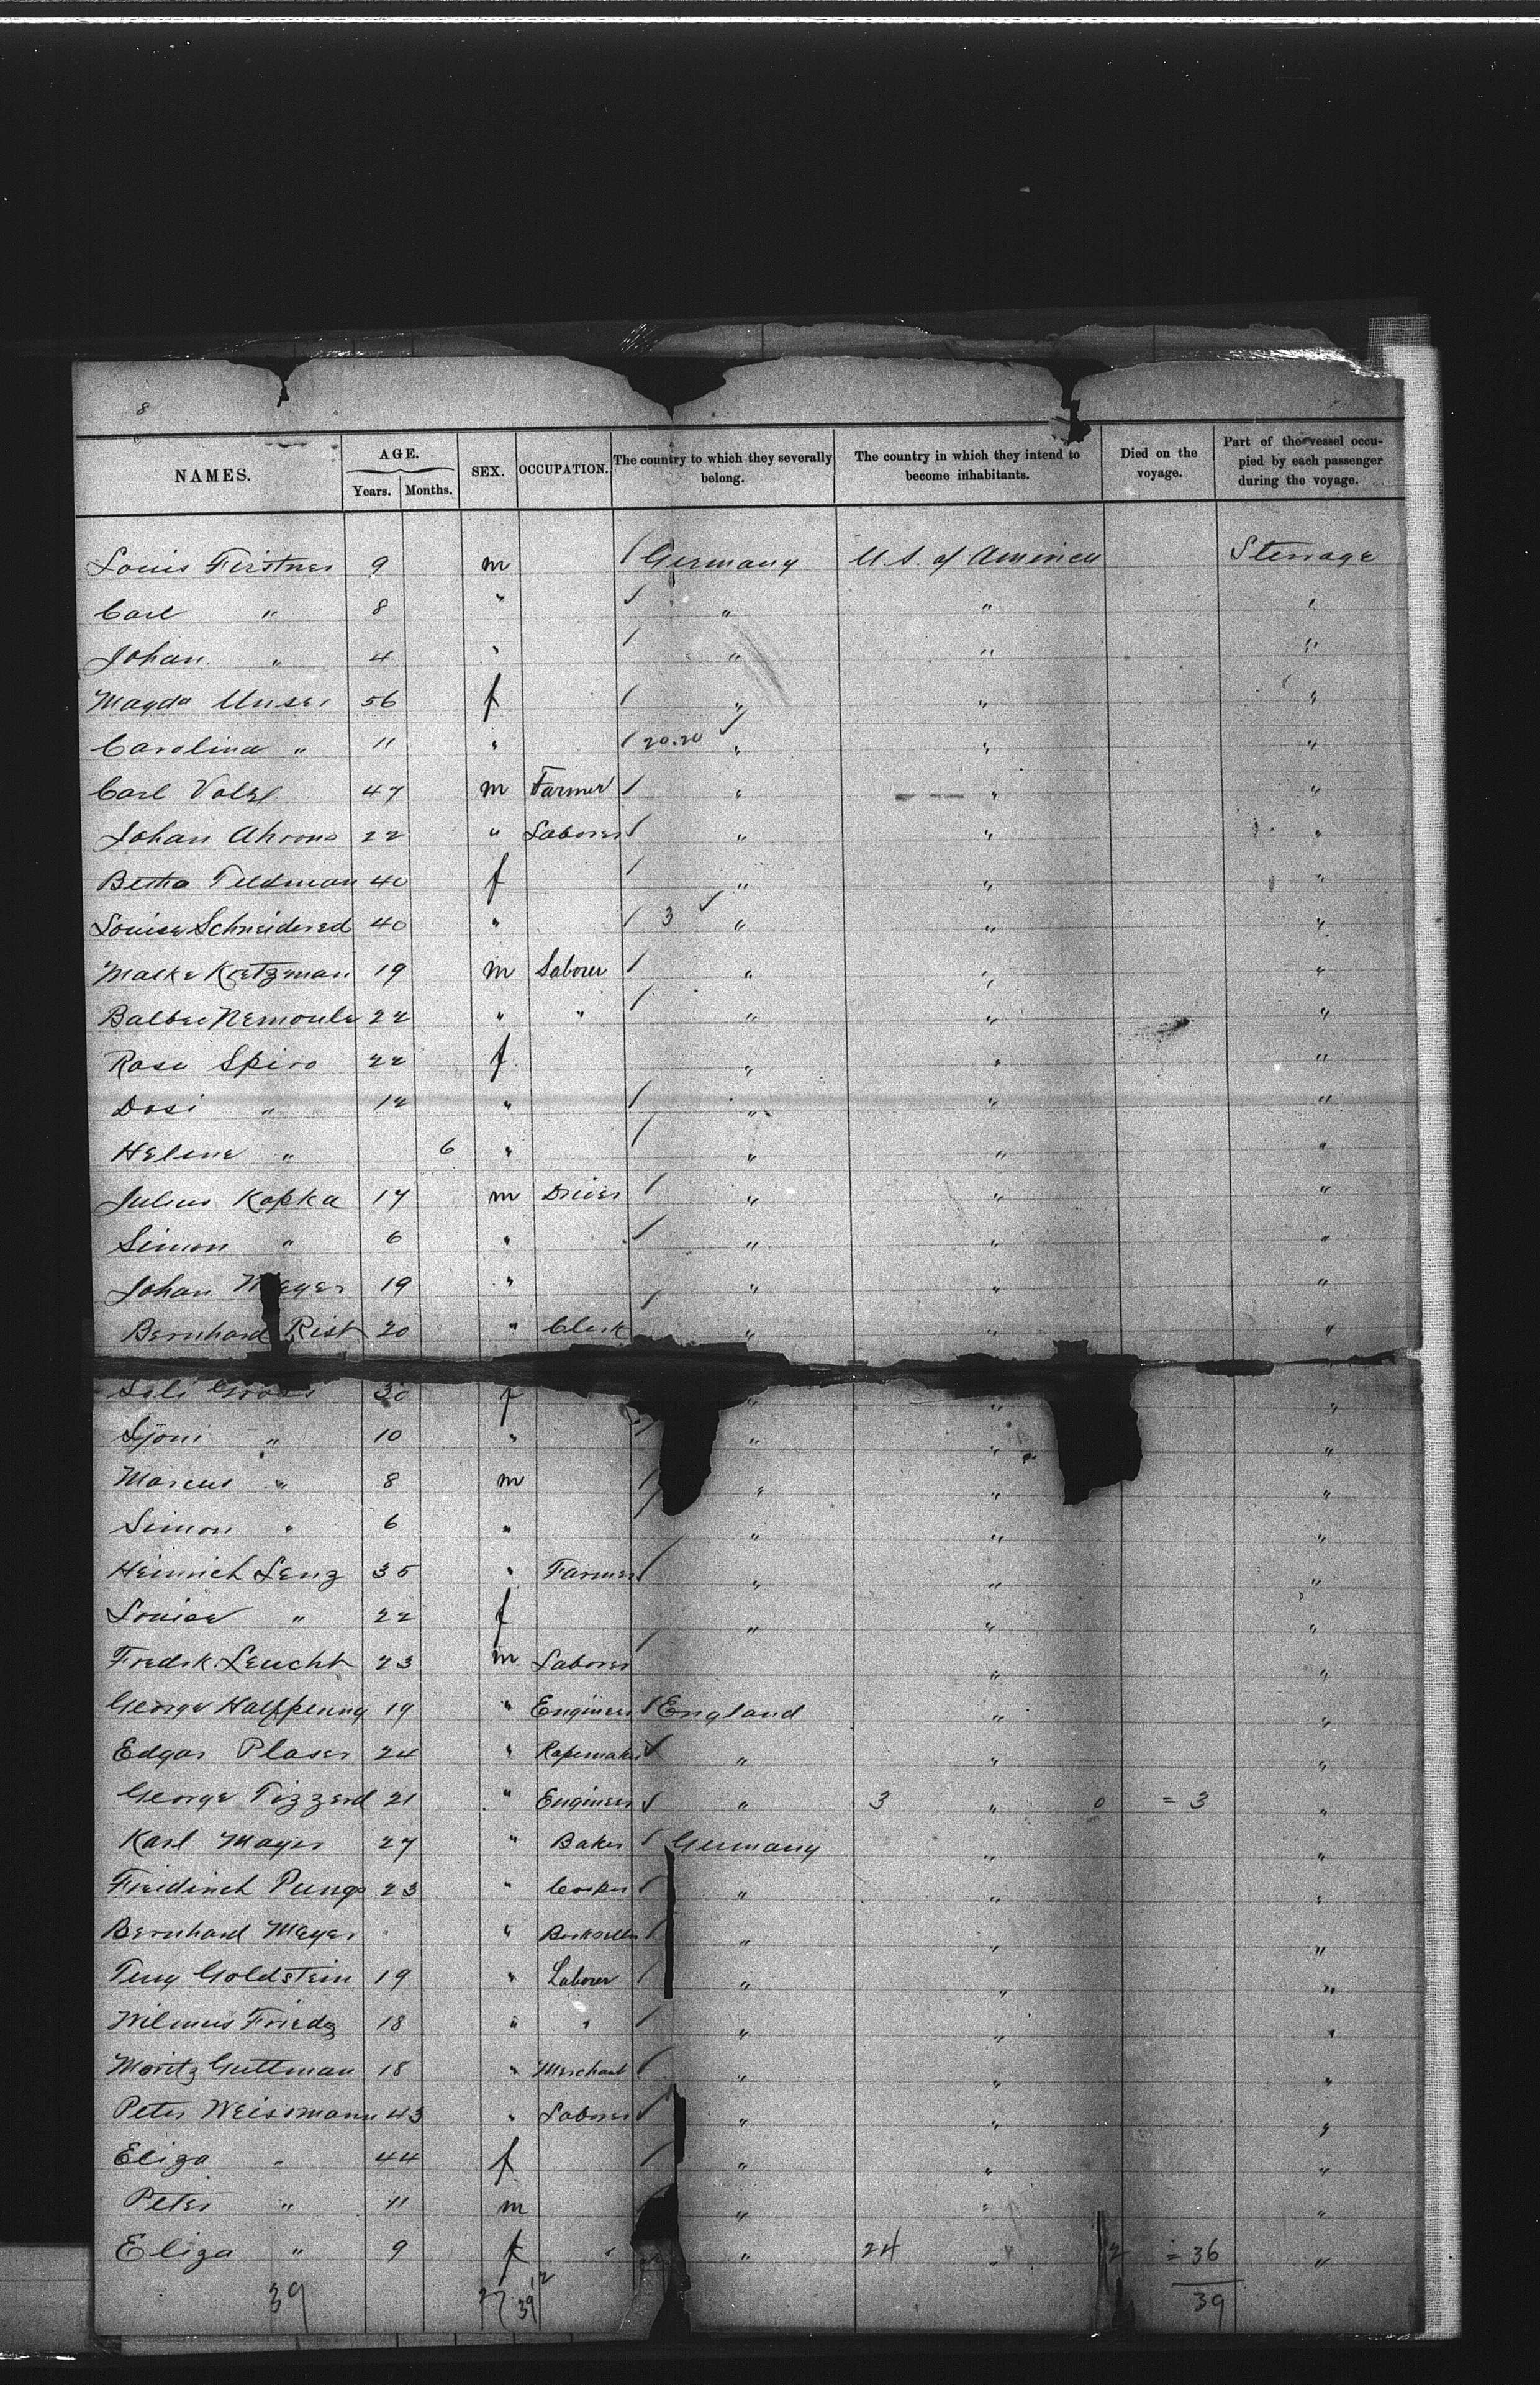 8
NAMES. AGE. Years. Months. SEX. OCCUPATION. The country to which they severally belong. The country in which they intend to become inhabitants. Died on the voyage. Part of the vessel occupied by each passenger during the voyage.
Louis Firstner 9 m / Germany U.S. of America Sterrage
Carl " 8 " / " " "
Johan " 4 " / " " "
Magda Unser 56 f / " " "
Carolina " 11 " / 20.20 ✓ " " "
Carl 47 m Farmer / " " "
Johan Ahrons 22 " Laborer / " " "
Betha Feldman 40 f / " " "
Louise Schneidered 40 " / 3 ✓ " " "
Malke Kretzman 19 m Laborer / " " "
Nemoule 22 " " / " " "
Rosa Spiro 22 f " " "
Dosi " 12 " / " " "
Helene " 6 " / " " "
Julius Kopka 17 m / " " "
Simon " 6 " / " " "
Johan Meyer 19 " " " "
Bernhard Rist 20 " Clerk / " " "
30 f " " "
" 10 " / " " "
Marcus " 8 m / " " "
Simon " 6 " / " " "
Heinrich Lenz 35 " Farmer / " " "
Louise " 22 f " " "
Fredrk. Leucht 23 m Laborer / " "
George Halfpenny 19 " Engineer / England " "
Edgar Plaser 24 " Ropemaker / " " "
George Tizzerd 21 " Engineer / " 3 " 0 = 3 "
Karl Mayer 27 " Baker / Germany " "
Friedirich Pungs 23 " / " " "
Bernhard Meyer " Bookseller / " " "
Goldstein 19 " Laborer / " " "
Wilmus 18 " " / " " "
Moritz Guttman 18 " Merchant / " " "
Peter Weissmann 43 " Laborer / " " "
Eliza " 44 f / " " "
Peter " 11 m " " "
Eliza " 9 f " 24 " 12 = 36 "
39 27 12 39 39